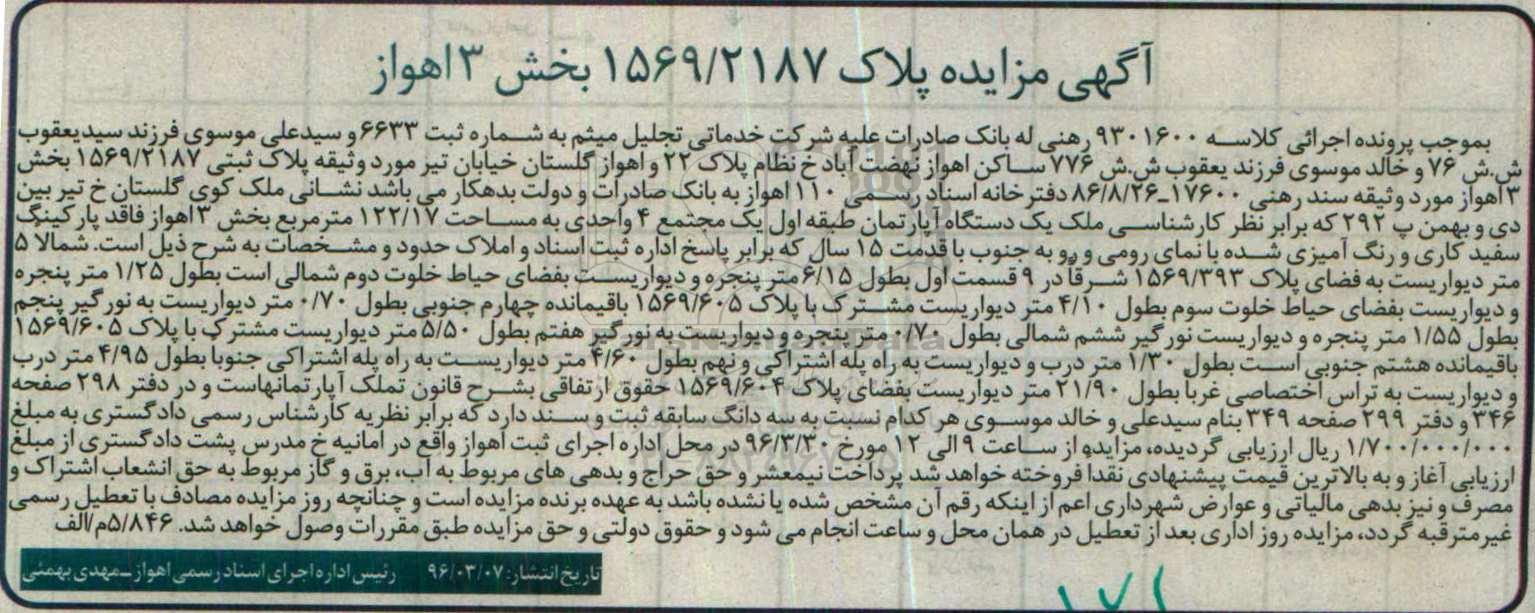 آگهی مزایده پلاک ۱۵۶۹/۲۱۸۷ بخش ۳ اهواز
بموجب پرونده اجرائی کلاسه ۹۳۰۱۶۰۰ رهنی له بانک صادرات علیه شرکت خدماتی تجلیل میثم به شماره ثبت ۶۶۳۳ و سیدعلی موسوی فرزند سیدیعقوب
ش.ش ۷۶ و خالد موسوی فرزند یعقوب ش.ش ۷۷۶ ساکن اهواز نهضت آباد خ نظام پلاک ۲۲ و اهواز گلستان خیابان تیر مورد وثیقه پلاک ثبتی ۱۵۶۹/۲۱۸۷ بخش
۳ اهواز مورد وثیقه سند رهنی ۱۷۶۰۰-۸۶/۸/۲۶ دفترخانه اسناد رسمی ۱۱۰ اهواز به بانک صادرات و دولت بدهکار می باشد نشانی ملک کوی گلستان خ تیر بین
دی و بهمن پ ۲۹۲ که برابر نظر کارشناسی ملک یک دستگاه آپارتمان طبقه اول یک مجتمع ۴ واحدی به مساحت ۱۲۲/۱۷ مترمربع بخش ۳ اهواز فاقد پارکینگ
سفید کاری و رنگ آمیزی شده با نمای رومی و رو به جنوب با قدمت ۱۵ سال که برابر پاسخ اداره ثبت اسناد و املاک حدود و مشخصات به شرح ذیل است. شمالاً ۵
متر دیواریست به فضای پلاک ۱۵۶۹/۳۹۳ شرقاً در ۹ قسمت اول بطول ۶/۱۵ متر پنجره و دیواریست بفضای حیاط خلوت دوم شمالی است بطول ۱/۲۵ متر پنجره
و دیواریست بفضای حیاط خلوت سوم بطول ۴/۱۰ متر دیواریست مشترک با پلاک ۱۵۶۹/۶۰۵ باقیمانده چهارم جنوبی بطول ۰/۷۰ متر دیواریست به نورگیر پنجم
بطول ۱/۵۵ متر پنجره و دیواریست نورگیر ششم شمالی بطول ۰/۷۰ متر پنجره و دیواریست به نورگیر هفتم بطول ۵/۵۰ متر دیواریست مشترک با پلاک ۱۵۶۹/۶۰۵
باقیمانده هشتم جنوبی است بطول ۱/۳۰ متر درب و دیواریست به راه پله اشتراکی و نهم بطول ۴/۶۰ متر دیواریست به راه پله اشتراکی جنوباً بطول ۴/۹۵ متر درب
و دیواریست به تراس اختصاصی غرباً بطول ۲۱/۹۰ متر دیواریست بفضای پلاک ۱۵۶۹/۶۰۴ حقوق ارتفاقی بشرح قانون تملک آپارتمانهاست و در دفتر ۲۹۸ صفحه
۳۴۶ و دفتر ۲۹۹ صفحه ۳۴۹ بنام سیدعلی و خالد موسوی هر کدام نسبت به سه دانگ سابقه ثبت و سند دارد که برابر نظریه کارشناس رسمی دادگستری به مبلغ
۱/۷۰۰/۰۰۰/۰۰۰ ریال ارزیابی گردیده، مزایده از ساعت ۹ الی ۱۲ مورخ ۹۶/۳/۳۰ در محل اداره اجرای ثبت اهواز واقع در امانیه خ مدرس پشت دادگستری از مبلغ
ارزیابی آغاز و به بالاترین قیمت پیشنهادی نقداً فروخته خواهد شد پرداخت نیمعشر و حق حراج و بدهی های مربوط به آب، برق و گاز مربوط به حق انشعاب اشتراک و
مصرف و نیز بدهی مالیاتی و عوارض شهرداری اعم از اینکه رقم آن مشخص شده یا نشده باشد به عهده برنده مزایده است و چنانچه روز مزایده مصادف با تعطیل رسمی
غیرمترقبه گردد، مزایده روز اداری بعد از تعطیل در همان محل و ساعت انجام می شود و حقوق دولتی و حق مزایده طبق مقررات وصول خواهد شد. ۵/۸۴۶م/الف
تاریخ انتشار: ۹۶/۰۳/۰۷ رئیس اداره اجرای اسناد رسمی اهواز-مهدی بهمئی